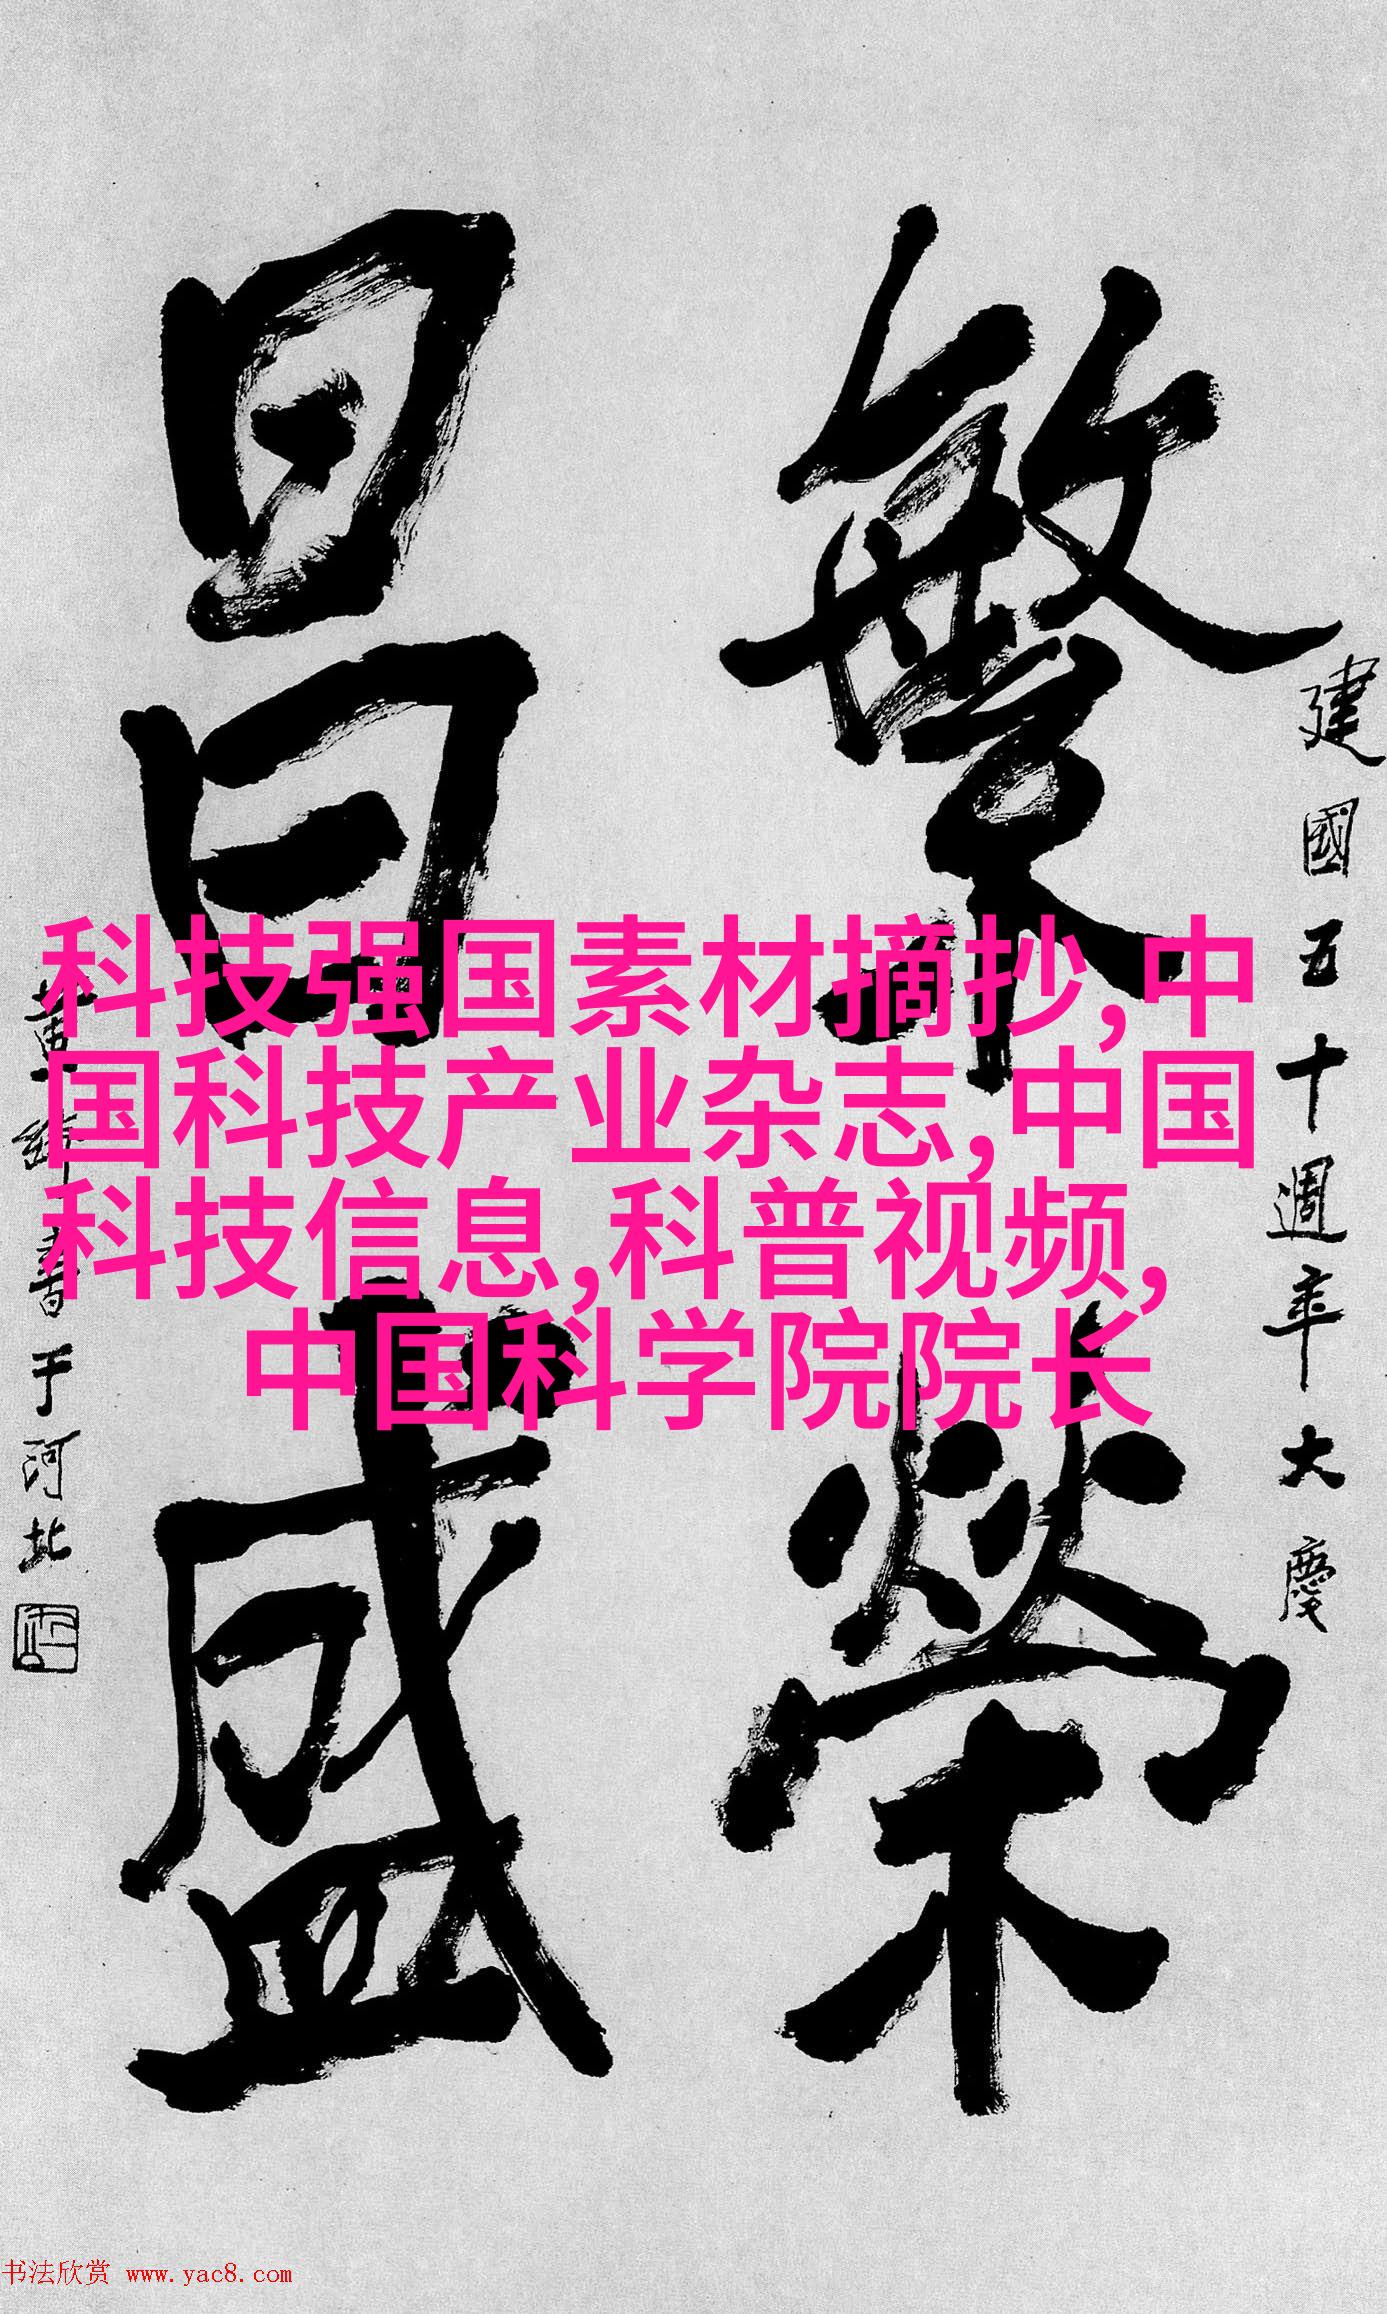 建國五十週年大慶
繁榮
昌盛
书于河北
科技强国素材摘抄,中
国科技产业杂志,中国
科技信息,科普视频,
中国科学院院长
书法欣赏 www.yac8.com